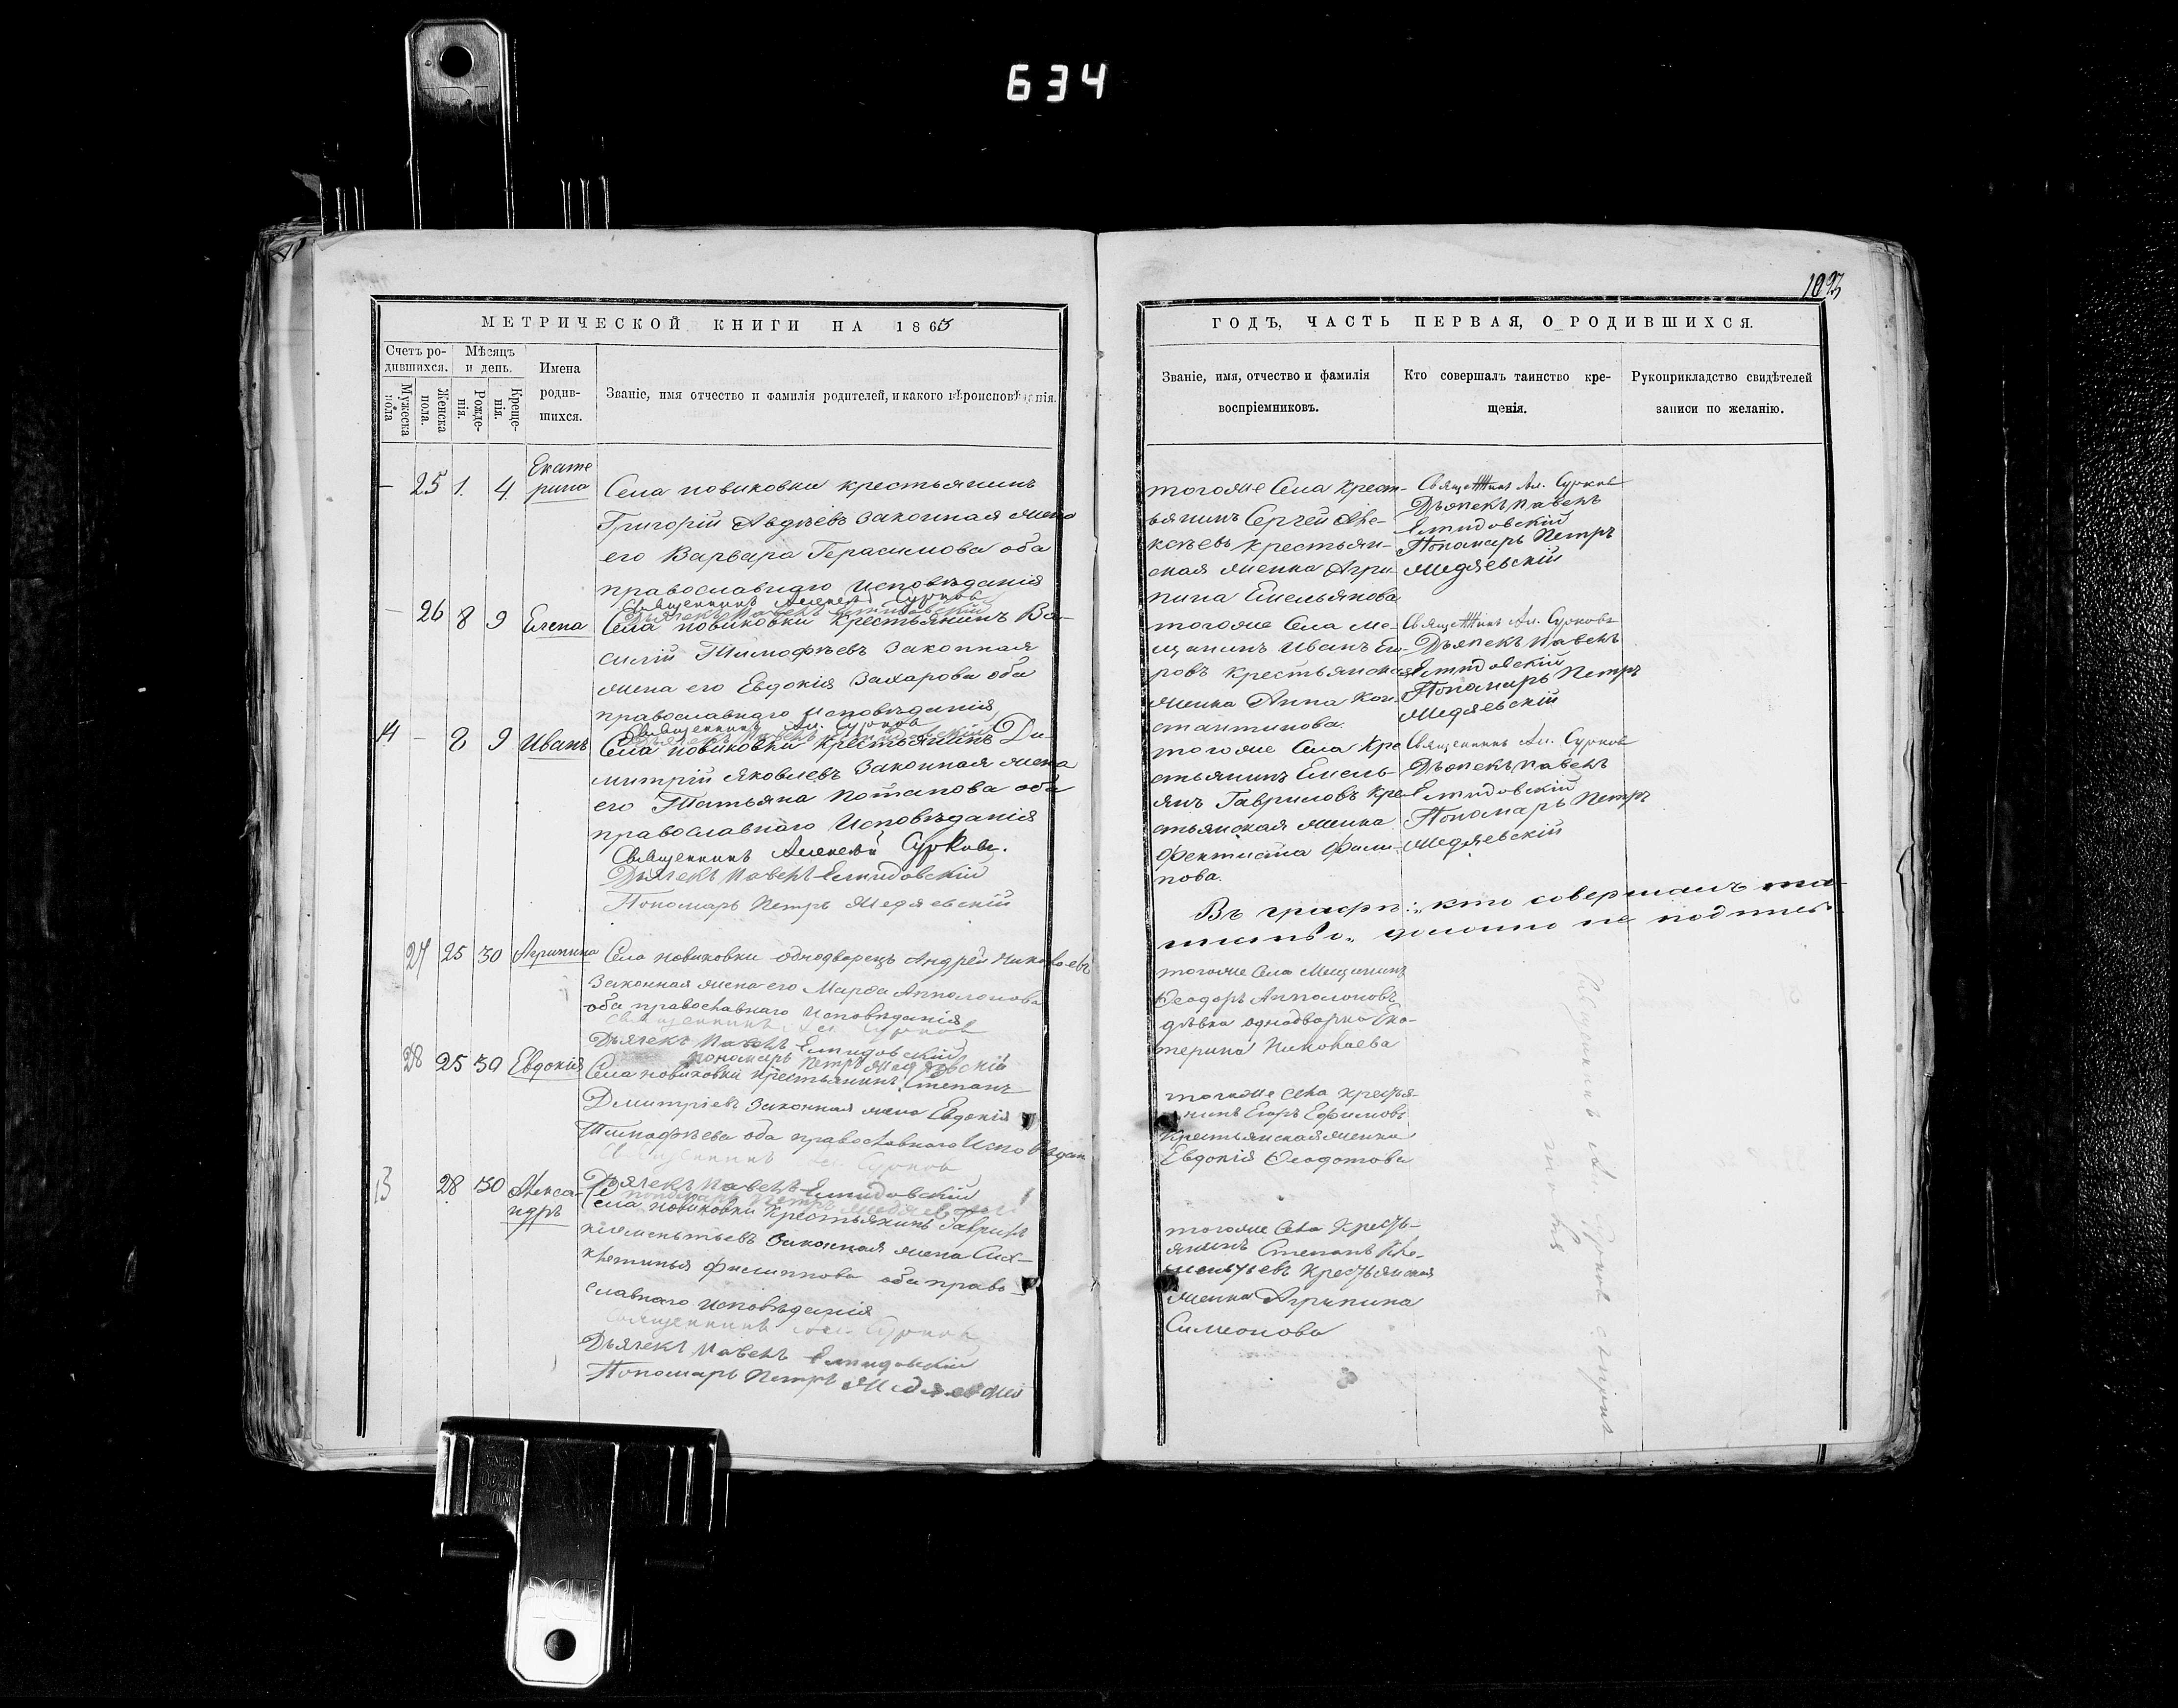 634
1093
МЕТРИЧЕСКОЙ КНИГИ НА 1863
Счетъ ро-
дившихся.
Мѣсяцъ
и день.
Мужеска
пола
Женска
пола.
Рожде-
нія.
Креще-
нія.
Имена
родив-
шихся.
Званіе, имя отчество и фамилія родителей, и какого вѣроисповѣданія.
— 25 1. 4
Екате
рина
Села новиковки крестьянинъ
Григорій Авдѣевъ законная жена
его Варвара Герасимова оба
православнаго исповѣданія
Священникъ Алексей Сурковъ
— 26 8 9 Елена
Села новиковки крестьянинъ Ва-
силій Тимофѣевъ законная
жена его Евдокія Захарова оба
православнаго исповѣданія
Священникъ Ал. Сурковъ
14 — 8 9 Иванъ
Села новиковки крестьянинъ Ди-
митрій Яковлевъ законная жена
его Татьяна Потапова оба
православнаго исповѣданія
Священникъ Алексей Сурковъ.
Дьячекъ Павелъ
Пономарь Петръ
27 25 30 Агрипина
Села новиковки однодворецъ Андрей Николаевъ
Законная жена его Марфа Апполонова
оба православнаго исповѣданія
Священникъ Ал. Сурковъ
Дьячекъ Павелъ
пономарь Петръ
28 25 30 Евдокія
Села новиковки крестьянинъ Степанъ
Дмитріевъ законная жена Евдокія
Тимофѣева оба православнаго исповѣдан
Священникъ Ал. Сурковъ
Дьячекъ Павелъ
28 30 Алекса-
ндръ
Села новиковки крестьянинъ Гаврилъ
клементьевъ Законная жена
Филиппова оба право-
славнаго исповѣданія
Священникъ Ал. Сурковъ
Дьячекъ Павелъ
Пономарь Петръ
ГОДЪ, ЧАСТЬ ПЕРВАЯ, О РОДИВШИХСЯ.
Званіе, имя, отчество и фамилія
воспріемниковъ.
Кто совершалъ таинство кре-
щенія.
Рукоприкладство свидѣтелей
записи по желанію.
тогоже Села крест-
ьянинъ Сергей Але-
ксѣевъ крестьян-
ская женка Агри-
пина Емельянова
Священникъ Ал. Сурковъ
Дьячекъ Павелъ
Пономарь Петръ
тогоже Села ме-
щанинъ Иванъ
ровъ крестьянская
женка Анна Кон-
стантинова.
Священникъ Ал. Сурковъ
Дьячекъ Павелъ
Пономарь Петръ
тогоже Села кре
стьянинъ Емель-
янъ Гавриловъ кре
стьянская женка
Фектиста Фили-
пова.
Священникъ Ал. Сурковъ
Дьячекъ Павелъ
Пономарь Петръ
Въ графѣ: „кто совершалъ та-
инство„ не
тогоже Села Мещанинъ
Ѳеодоръ Апполоновъ
дѣвка однодворка Ека-
терина Николаева
тогоже Села крестья-
нинъ Егоръ Ефимовъ
Крестьянская женка
Евдокія Ѳеодотова
тогоже Села Кресть-
янинъ Степанъ Кле-
ментьевъ Крестьянская
женка Агрипина
Симеонова